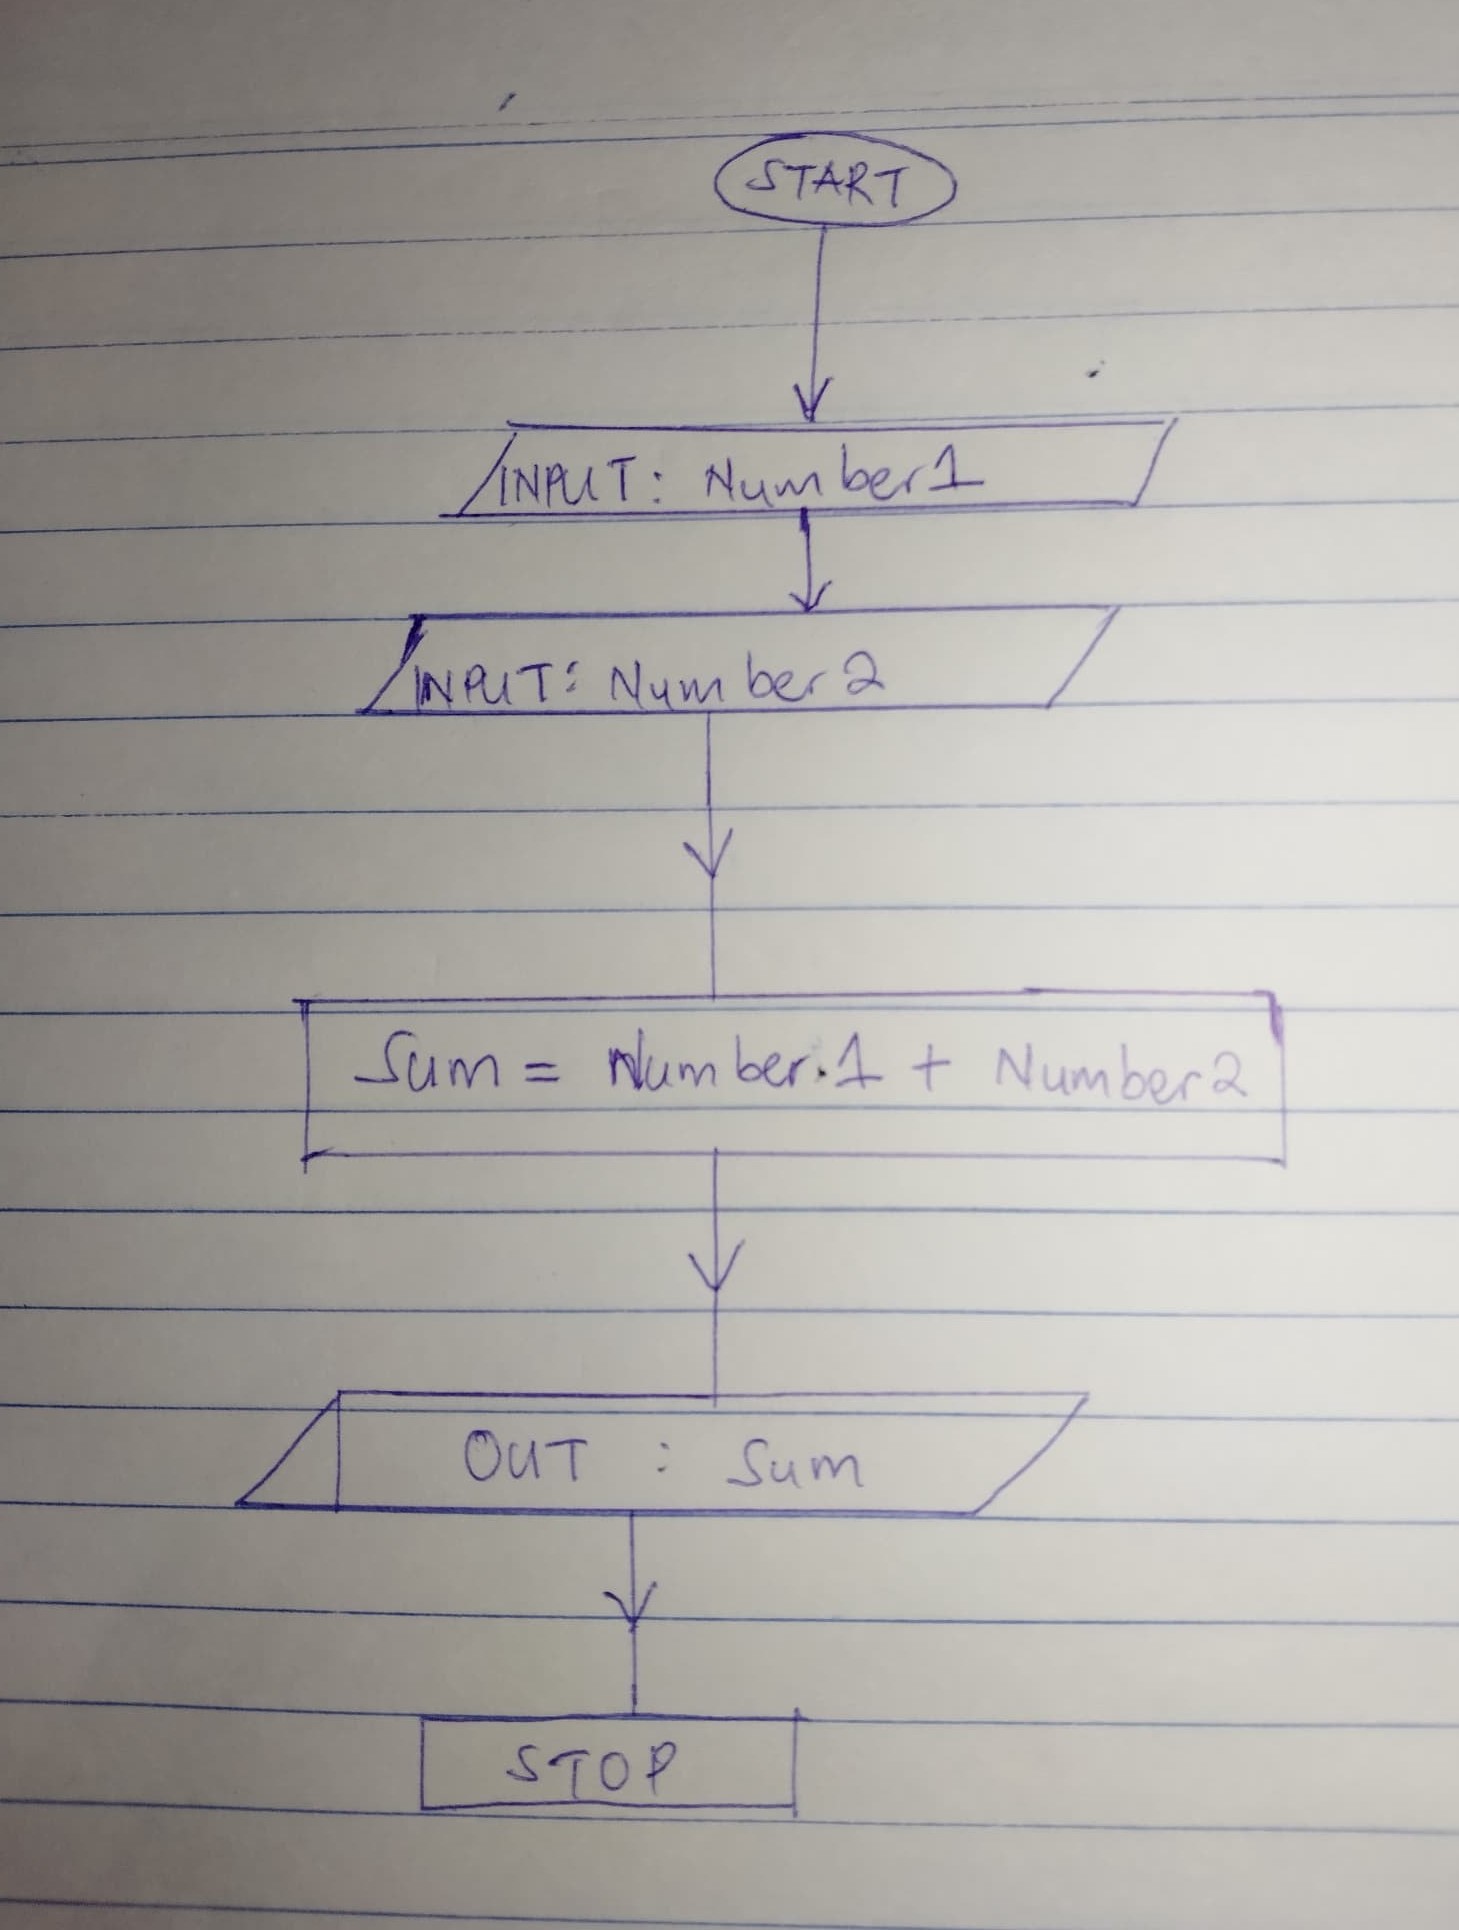 START
INPUT: Number1
INPUT: Number2
Sum = Number.1 + Number2
OUT : Sum
STOP